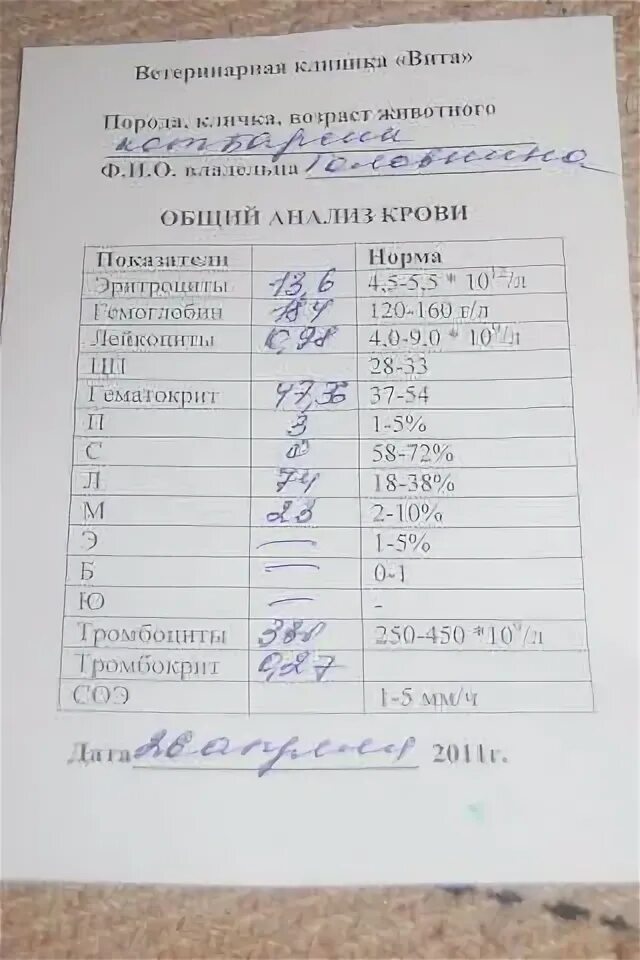 Ветеринарная клиника «Вита»
Порода, кличка, возраст животного
кот Барсик
Ф.И.О. владельца Головнина
ОБЩИЙ АНАЛИЗ КРОВИ
Показатели Норма
Эритроциты 13,6 4,5-5,5 * 10¹²/л
Гемоглобин 184 120-160 г/л
Лейкоциты 0,98 4,0-9,0 * 10⁹/л
ЦП 28-33
Гематокрит 47,36 37-54
П 3 1-5%
С 58-72%
Л 74 18-38%
М 23 2-10%
Э — 1-5%
Б — 0-1
Ю — -
Тромбоциты 250-450 *10⁹/л
Тромбокрит 0,27
СОЭ 1-5 мм/ч
Дата 26 апреля 2011г.